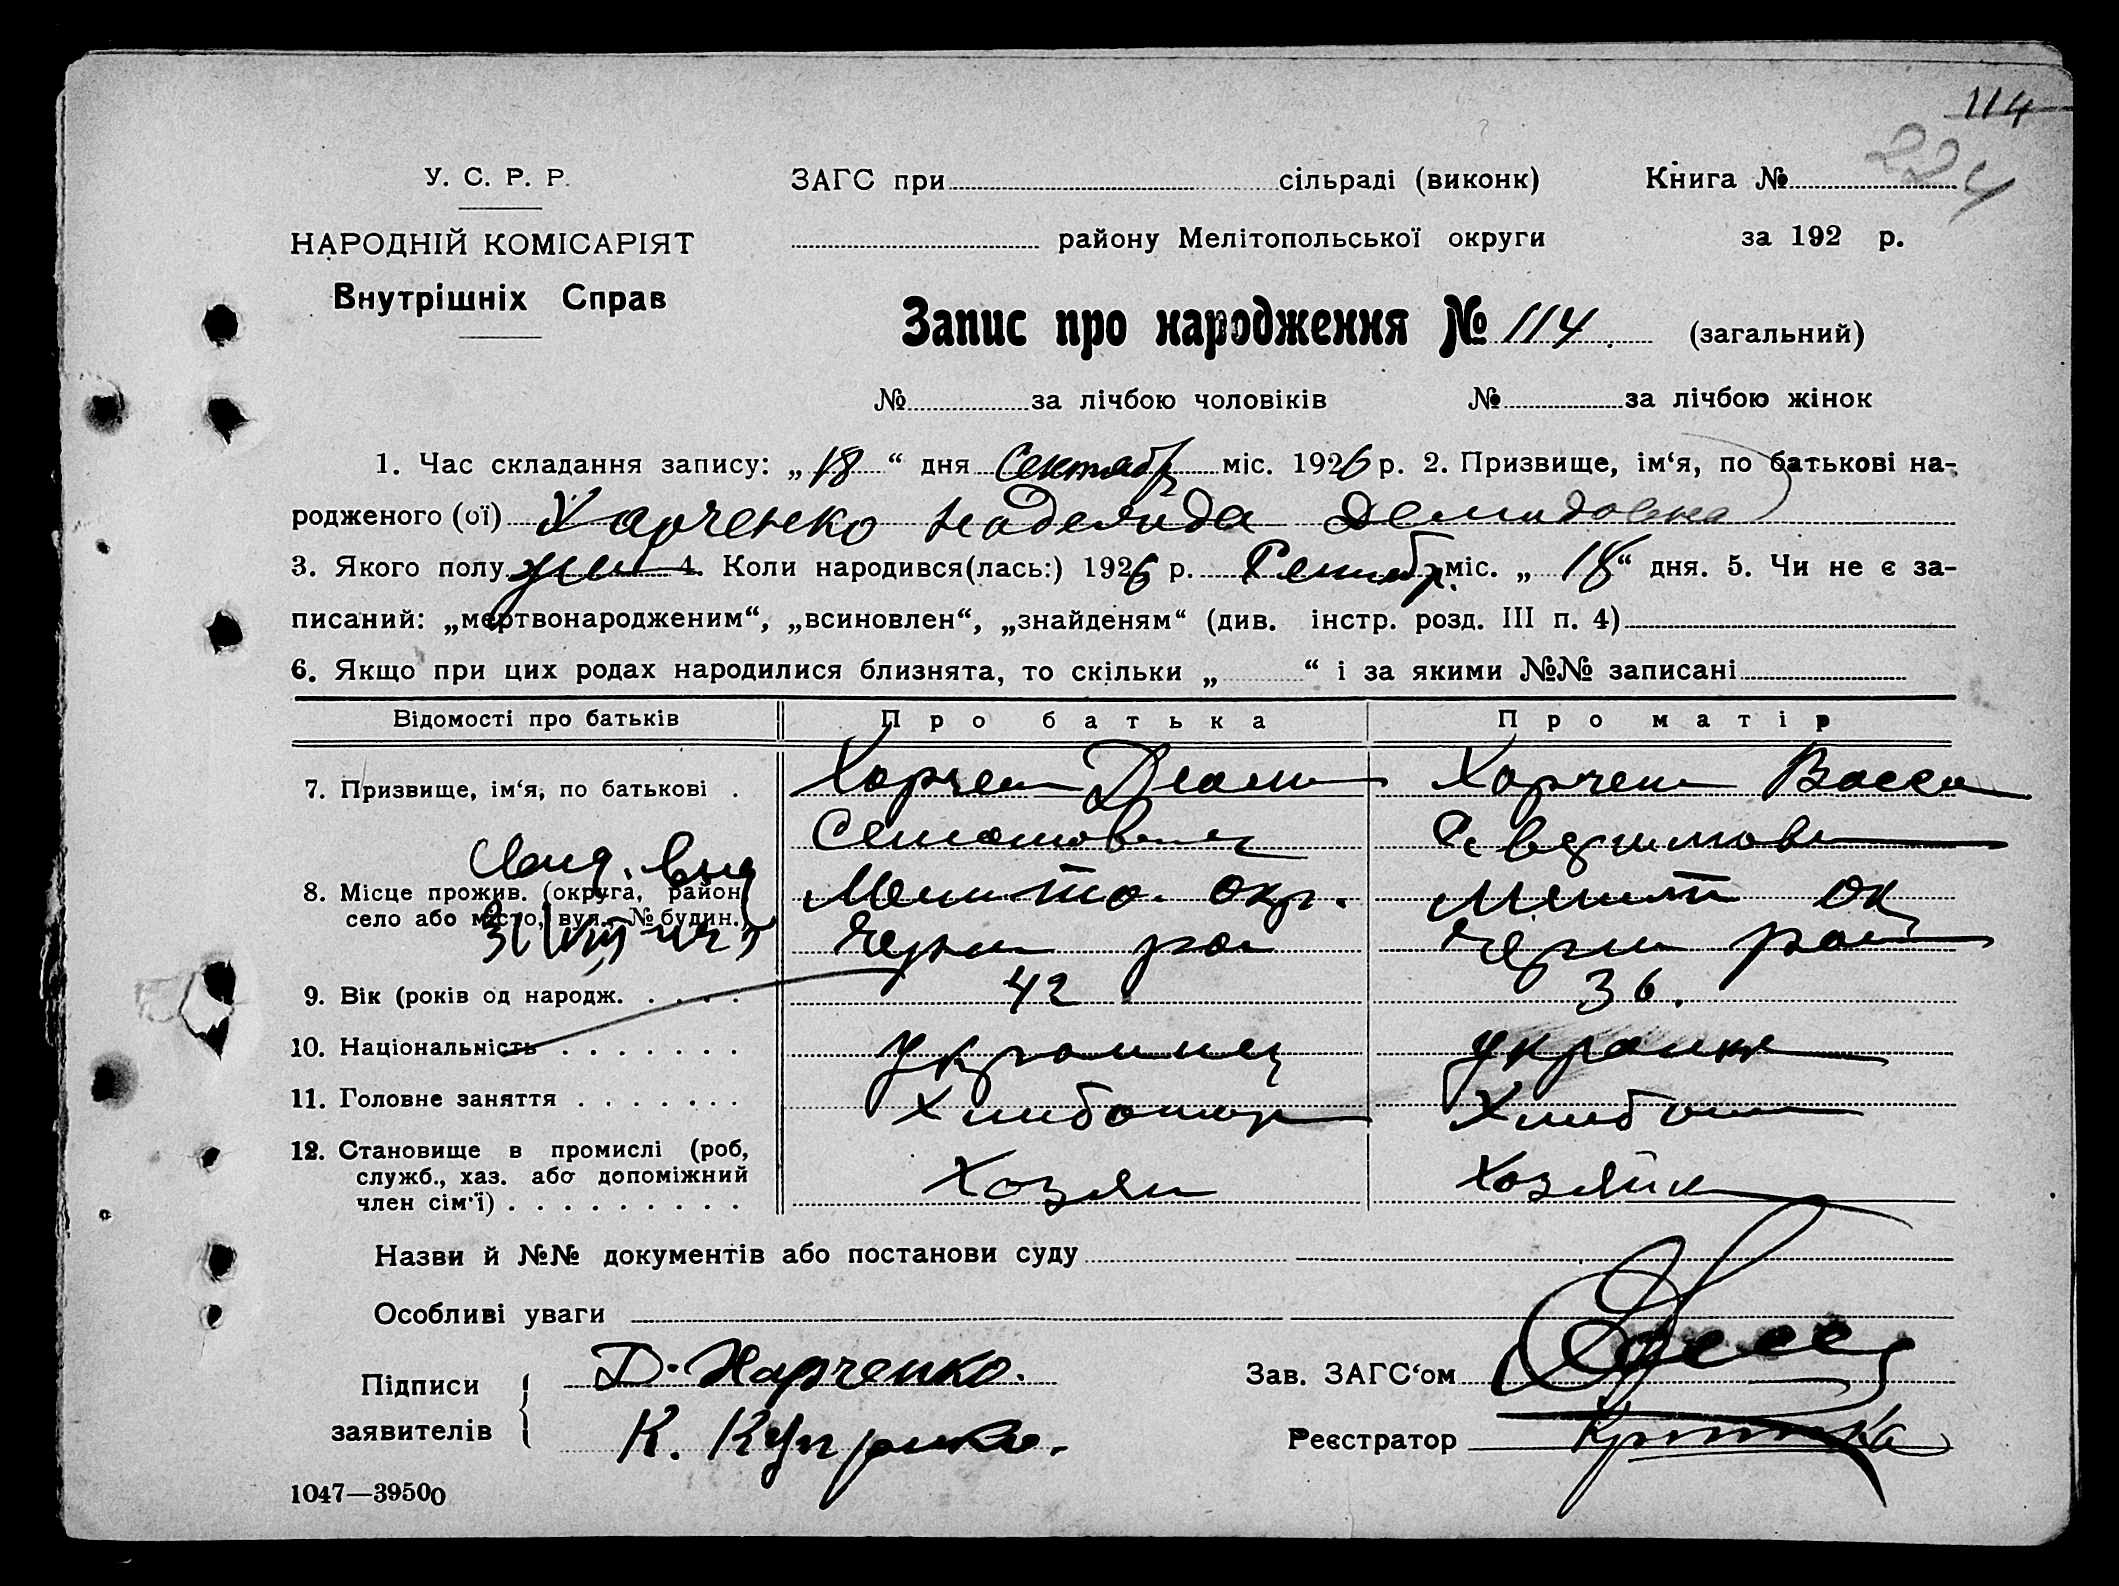 114
224
У. С. Р. Р.
НАРОДНІЙ КОМІСАРІЯТ
Внутрішніх Справ
ЗАГС при сільраді (виконк)
Книга №
району Мелітопольської округи
за 192 р.
Запис про народження № 114 (загальний)
№ за лічбою чоловіків № за лічбою жінок
1. Час складання запису: „18“ дня Сентябр міс. 1926 р. 2. Призвище, ім‘я, по батькові на-
родженого (ої) Харченко Надежда Демидовна
3. Якого полу жен 4. Коли народився(лась:) 1926 р. міс. „18“ дня. 5. Чи не є за-
писаний: „мертвонародженим“, „всиновлен“, „знайденям“ (див. інстр. розд. III п. 4)
6. Якщо при цих родах народилися близнята, то скільки „ “ і за якими №№ записані
Відомості про батьків Про батька Про матір
7. Призвище, ім‘я, по батькові . Харчен Харчен Васса
8. Місце прожив. (округа, район, окр. ок
село або місто, вул., № будин.)
9. Вік (років од народж. . . . . 42 36.
10. Національність . . . . . . . Украинец Украинк
11. Головне заняття . . . . . . .
12. Становище в промислі (роб, Хозяин Хозяйк
служб., хаз. або допоміжний
член сім‘ї) . . . . . . . . .
Назви й №№ документів або постанови суду
Особливі уваги
Підписи заявителів
Д. Харченко.
К.
Зав. ЗАГС‘ом
Реєстратор
1047—39500